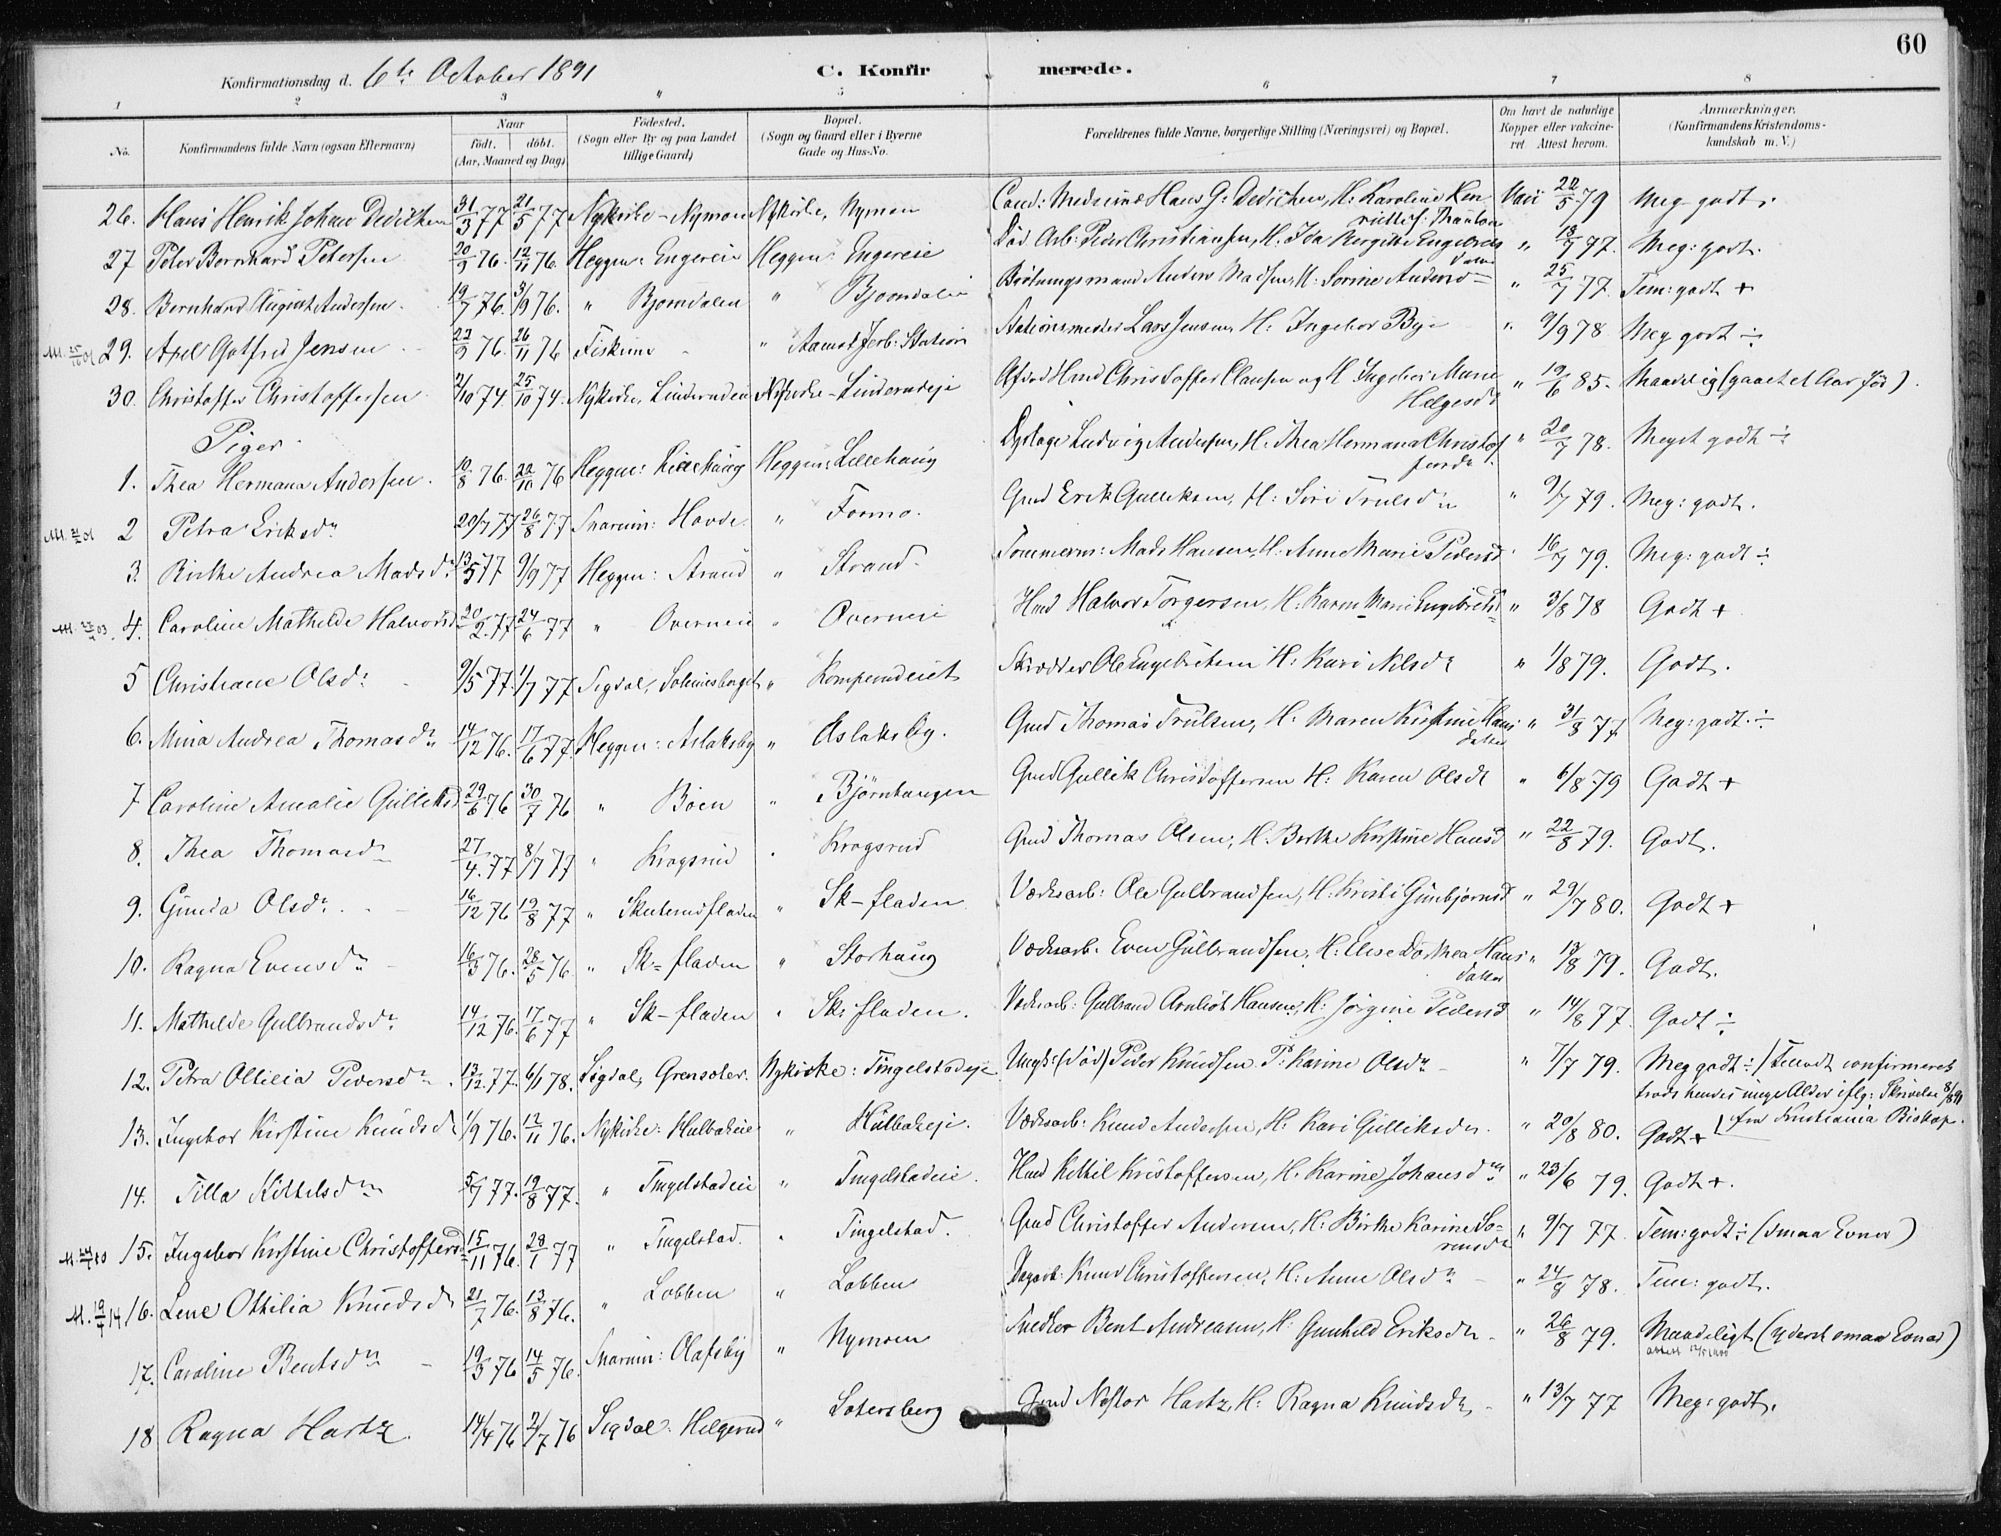 60
Konfirmationsdag d. 6te October 1891 C. Konfir merede.
1 2 3 4 5 6 7 8
No. Konfirmandens fulde Navn (ogsaa Efternavn) Naar født. døbt. (Aar, Maaned og Dag) Fødested. (Sogn eller By og paa Landet tillige Gaard) Bopæl. (Sogn og Gaard eller i Byerne Gade og Hus-No. Forældrenes fulde Navne, borgerlige Stilling (Næringsvei) og Bopæl. Om havt de naturlige Kopper eller vakcineret. Attest herom. Anmærkninger. (Konfirmandens Kristendomskundskab m. V.)
26. Hans Henrik Johan Dedichen 31/3 77 21/5 77 Nykirke - Nymoen Nykirke, Nymoen Cand: Medicinæ Hans G: Dedichen, H: Karoline Hen- Vacc 22/5 79 Meg godt.
27 Peter Bernhard Petersen 20/9 76. 12/11 76. Heggen: Engereie Heggen: Engereie Død Arb: Peder Christiansen, H. Ida Bergitte Engebrets datter " 18/7 77. Meg: godt.
28. Bernhard August Andersen. 19/7 76. 3/9 76. " Bjorndalen " Bjorndalen Anders Madsen, H: Sorine Andersd " 25/7 77. Tem: godt +
29. Axel Gotfred Jensen 22/9 76. 26/11 76 Fiskum " Aamot Jerb: Station Stationsmester Lars Jensen, H: Ingebor Bye " 9/9 78 Meg godt ÷
30. Christoffer Christoffersen 2/10 74. 25/10 74. Nykirke, Linderudeie Nykirke - Linderudeje Christoffer Clausen og H Ingebor Marie Helgesdr " 19/6 85. Maadelig (gaaet et Aar før).
Piger
1. Thea Hermana Andersen. 10/8 76. 22/10 76 Heggen: Lillehaug Heggen: Lillehaug Ludvig Andersen, H. Thea Hermana Christof fersdr. " 20/7 78. Meget godt ÷
2 Petra Eriksdr 20/7 77 26/8 77 Snarum: Hovde " Formo. Gmd Erik Gulliksen, H: Siri Trulsdr " 9/7 79. Meg: godt.
3. Birthe Andrea Madsdr. 13/5 77 9/9 77 Heggen: Strand " Strand. Tommerm: Mads Hansen, H: Anne Marie Pedersd " 16/7 79. Meg: godt ÷
4. Caroline Mathilde Halvorsd 20/2 77. 24/6 77 " Overneie " Overneie Hmd Halvor Torgersen, H: Karen Marie Engebretsd " 3/8 78 Godt +
5 Christiane Olsdr 9/5 77. 1/7 77. Sigdal, " Skrædder Ole Engebretsen H: Kari Nilsdr " 1/8 79. Godt.
6. Mina Andrea Thomasdr 14/12 76. 17/6 77. Heggen: Aslaksby " Aslaksby. Gmd Thomas Trulsen, H. Maren Kirstine Hans datter " 31/8 77 Meg: godt ÷
7 Caroline Amalie Gulliksd 29/6 76 30/7 76 " Böen " Björnhaugen Gmd Gullik Christoffersen H: Karen Olsdr " 6/8 79 Godt +
8. Thea Thomasdr 27/4. 77 8/7 77 " Krogsrud " Krogsrud Gmd Thomas Olsen, H. Berthe Kirstine Hansd " 22/8 79. Godt.
9. Gunda Olsdr. 16/12 76 19/8 77 " Skuterudfladen " Sk-fladen Værksarb: Ole Gulbrandsen, H. Kristi Gunbjørnsd " 29/7 80. Godt +
10. Ragna Evensdr 16/3 76. 28/5 76 " Sk-fladen " Storhaug Værksarb. Even Gulbrandsen, H: Elise Dorthea Hans datter " 18/8 79. Godt.
11. Mathilde Gulbrandsdr 14/12 76. 17/6 77 " Sk-fladen " Sk: fladen. Værksarb: Gulbrand Arnliot Hansen, H: Jörgine Pedersd " 14/8 77. Godt ÷
12. Petra Ottilia Pedersdr. 13/12. 77. 6/1 78. Sigdal, Nykirke: Tingelstadeje Ungk: (død) Peder Knudsen P: Karine Olsdr " 7/7 79. Meg godt ÷ / Tilladt confirmeret trods hendes unge Alder iflg: Skrivelse 8/8 91 fra Kristiania Biskop.
13. Ingebor Kirstine Knudsdr 1/9 76. 12/11 76. Nykirke: Hulbakeie " Hulbakeje. Værksarb: Knud Andersen, H: Kari Gulliksdr. " 20/8 80. Godt +
14. Tilla Kittelsdr 5/7 77. 19/8 77. " Tingelstadeie " Tingelstadeie. Hmd Kittil Kristoffersen, H: Karine Johansdr. " 23/6 79. Godt +.
15. Ingebor Kirstine Christoffersd 15/11 76. 28/1 77 " Tingelstad. " Tingelstad. Gmd Christoffer Andersen, H: Birthe Karine So- rensdr " 9/7 77. Tem: godt ÷ (smaa Evner)
16. Lene Othilia Knudsdr 21/7 76. 13/8 76. " Lobben " Lobben Dagarb: Knud Christoffersen, H: Anne Olsdr " 24/9 78. Tem: godt.
17. Caroline Bentsdr 19/3 76 14/5 76. Snarum: Olafsby " Nymoen Snedker Bent Andreasen, H: Gunhild Eriksdr. " 26/8 79. Maadeligt (yderst smaa Evner)
18 Ragna Hartz. 14/4 76 2/7 76 Sigdal: Helgerud " Satersberg Gmd Nestor Hartz, H: Ragna Knudsdr, " 13/7 77 Meg: godt.